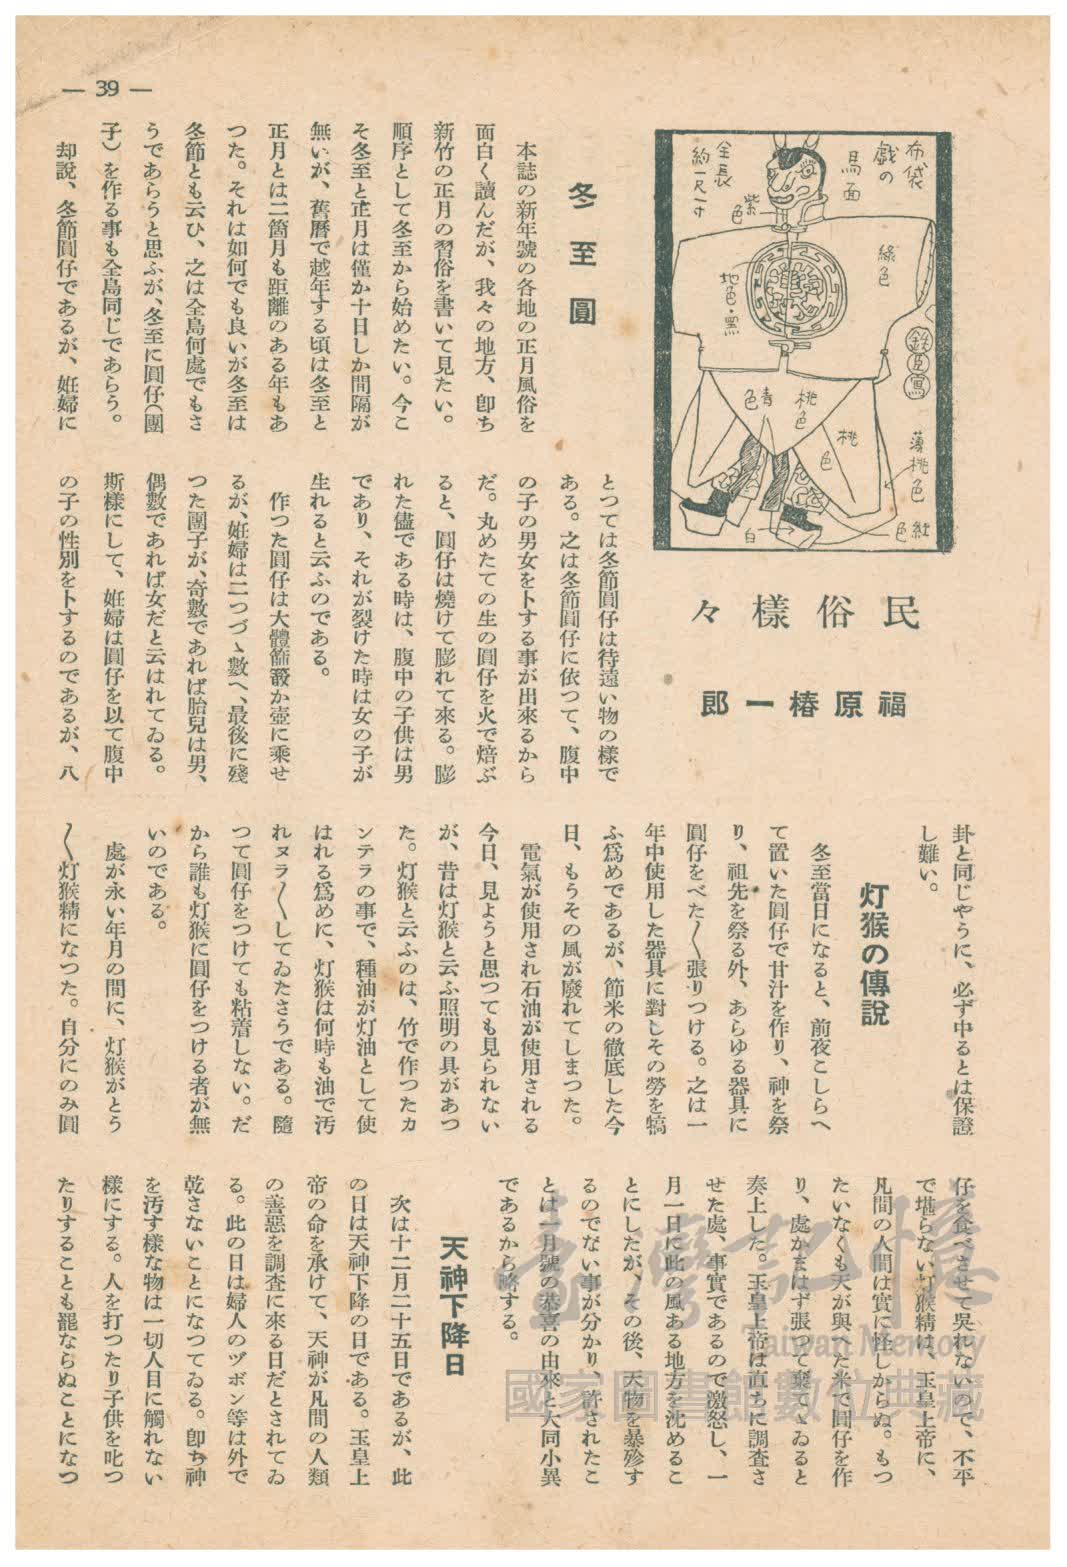 — 39 —
布袋
戲の
馬面
全長
約一尺一寸
紫色
綠色
地色・黑
鉄臣寫
青色
桃色
桃色
薄桃色
紅色
白
民俗樣々
福原椿一郎
冬至圓
本誌の新年號の各地の正月風俗を
面白く讀んだが、我々の地方、卽ち
新竹の正月の習俗を書いて見たい。
順序として冬至から始めたい。今こ
そ冬至と正月は僅か十日しか間隔が
無いが、舊曆で越年する頃は冬至と
正月とは二箇月も距離のある年もあ
つた。それは如何でも良いが冬至は
冬節とも云ひ、之は全島何處でもさ
うであらうと思ふが、冬至に圓仔（團
子）を作る事も全島同じであらう。
却說、冬節圓仔であるが、姙婦に
とつては冬節圓仔は待遠い物の樣で
ある。之は冬節圓仔に依つて、腹中
の子の男女を卜する事が出來るから
だ。丸めたての生の圓仔を火で焙ぶ
ると、圓仔は燒けて膨れて來る。膨
れた儘である時は、腹中の子供は男
であり、それが裂けた時は女の子が
生れると云ふのである。
作つた圓仔は大體篩簌か壺に乘せ
るが、姙婦は二つづゝ數へ、最後に殘
つた團子が、奇數であれば胎兒は男、
偶數であれば女だと云はれてゐる。
斯樣にして、姙婦は圓仔を以て腹中
の子の性別を卜するのであるが、八
卦と同じやうに、必ず中るとは保證
し難い。
灯猴の傳說
冬至當日になると、前夜こしらへ
て置いた圓仔で甘汁を作り、神を祭
り、祖先を祭る外、あらゆる器具に
圓仔をべた〱張りつける。之は一
年中使用した器具に對しその勞を犒
ふ爲めであるが、節米の徹底した今
日、もうその風が廢れてしまつた。
電氣が使用され石油が使用される
今日、見ようと思つても見られない
が、昔は灯猴と云ふ照明の具があつ
た。灯猴と云ふのは、竹で作つたカ
ンテラの事で、種油が灯油として使
はれる爲めに、灯猴は何時も油で汚
れヌラ〱してゐたさうである。隨
つて圓仔をつけても粘着しない。だ
から誰も灯猴に圓仔をつける者が無
いのである。
處が永い年月の間に、灯猴がとう
〱灯猴精になつた。自分にのみ圓
仔を食べさせて吳れないので、不平
で堪らない灯猴精は、玉皇上帝に、
凡間の人間は實に怪しからぬ。もつ
たいなくも天が與へた米で圓仔を作
り、處かまはず張つて棄てゝゐると
奏上した。玉皇上帝は直ちに調査さ
せた處、事實であるので激怒し、一
月一日に此の風ある地方を沈めるこ
とにしたが、その後、天物を暴殄す
るのでない事が分かり、許されたこ
とは一月號の恭喜の由來と大同小異
であるから略する。
天神下降日
次は十二月二十五日であるが、此
の日は天神下降の日である。玉皇上
帝の命を承けて、天神が凡間の人類
の善惡を調査に來る日だとされてゐ
る。此の日は婦人のヅボン等は外で
乾さないことになつてゐる。卽ち神
を汚す樣な物は一切人目に觸れない
樣にする。人を打つたり子供を叱つ
たりすることも罷ならぬことになつ
臺灣記憶
Taiwan Memory
國家圖書館數位典藏